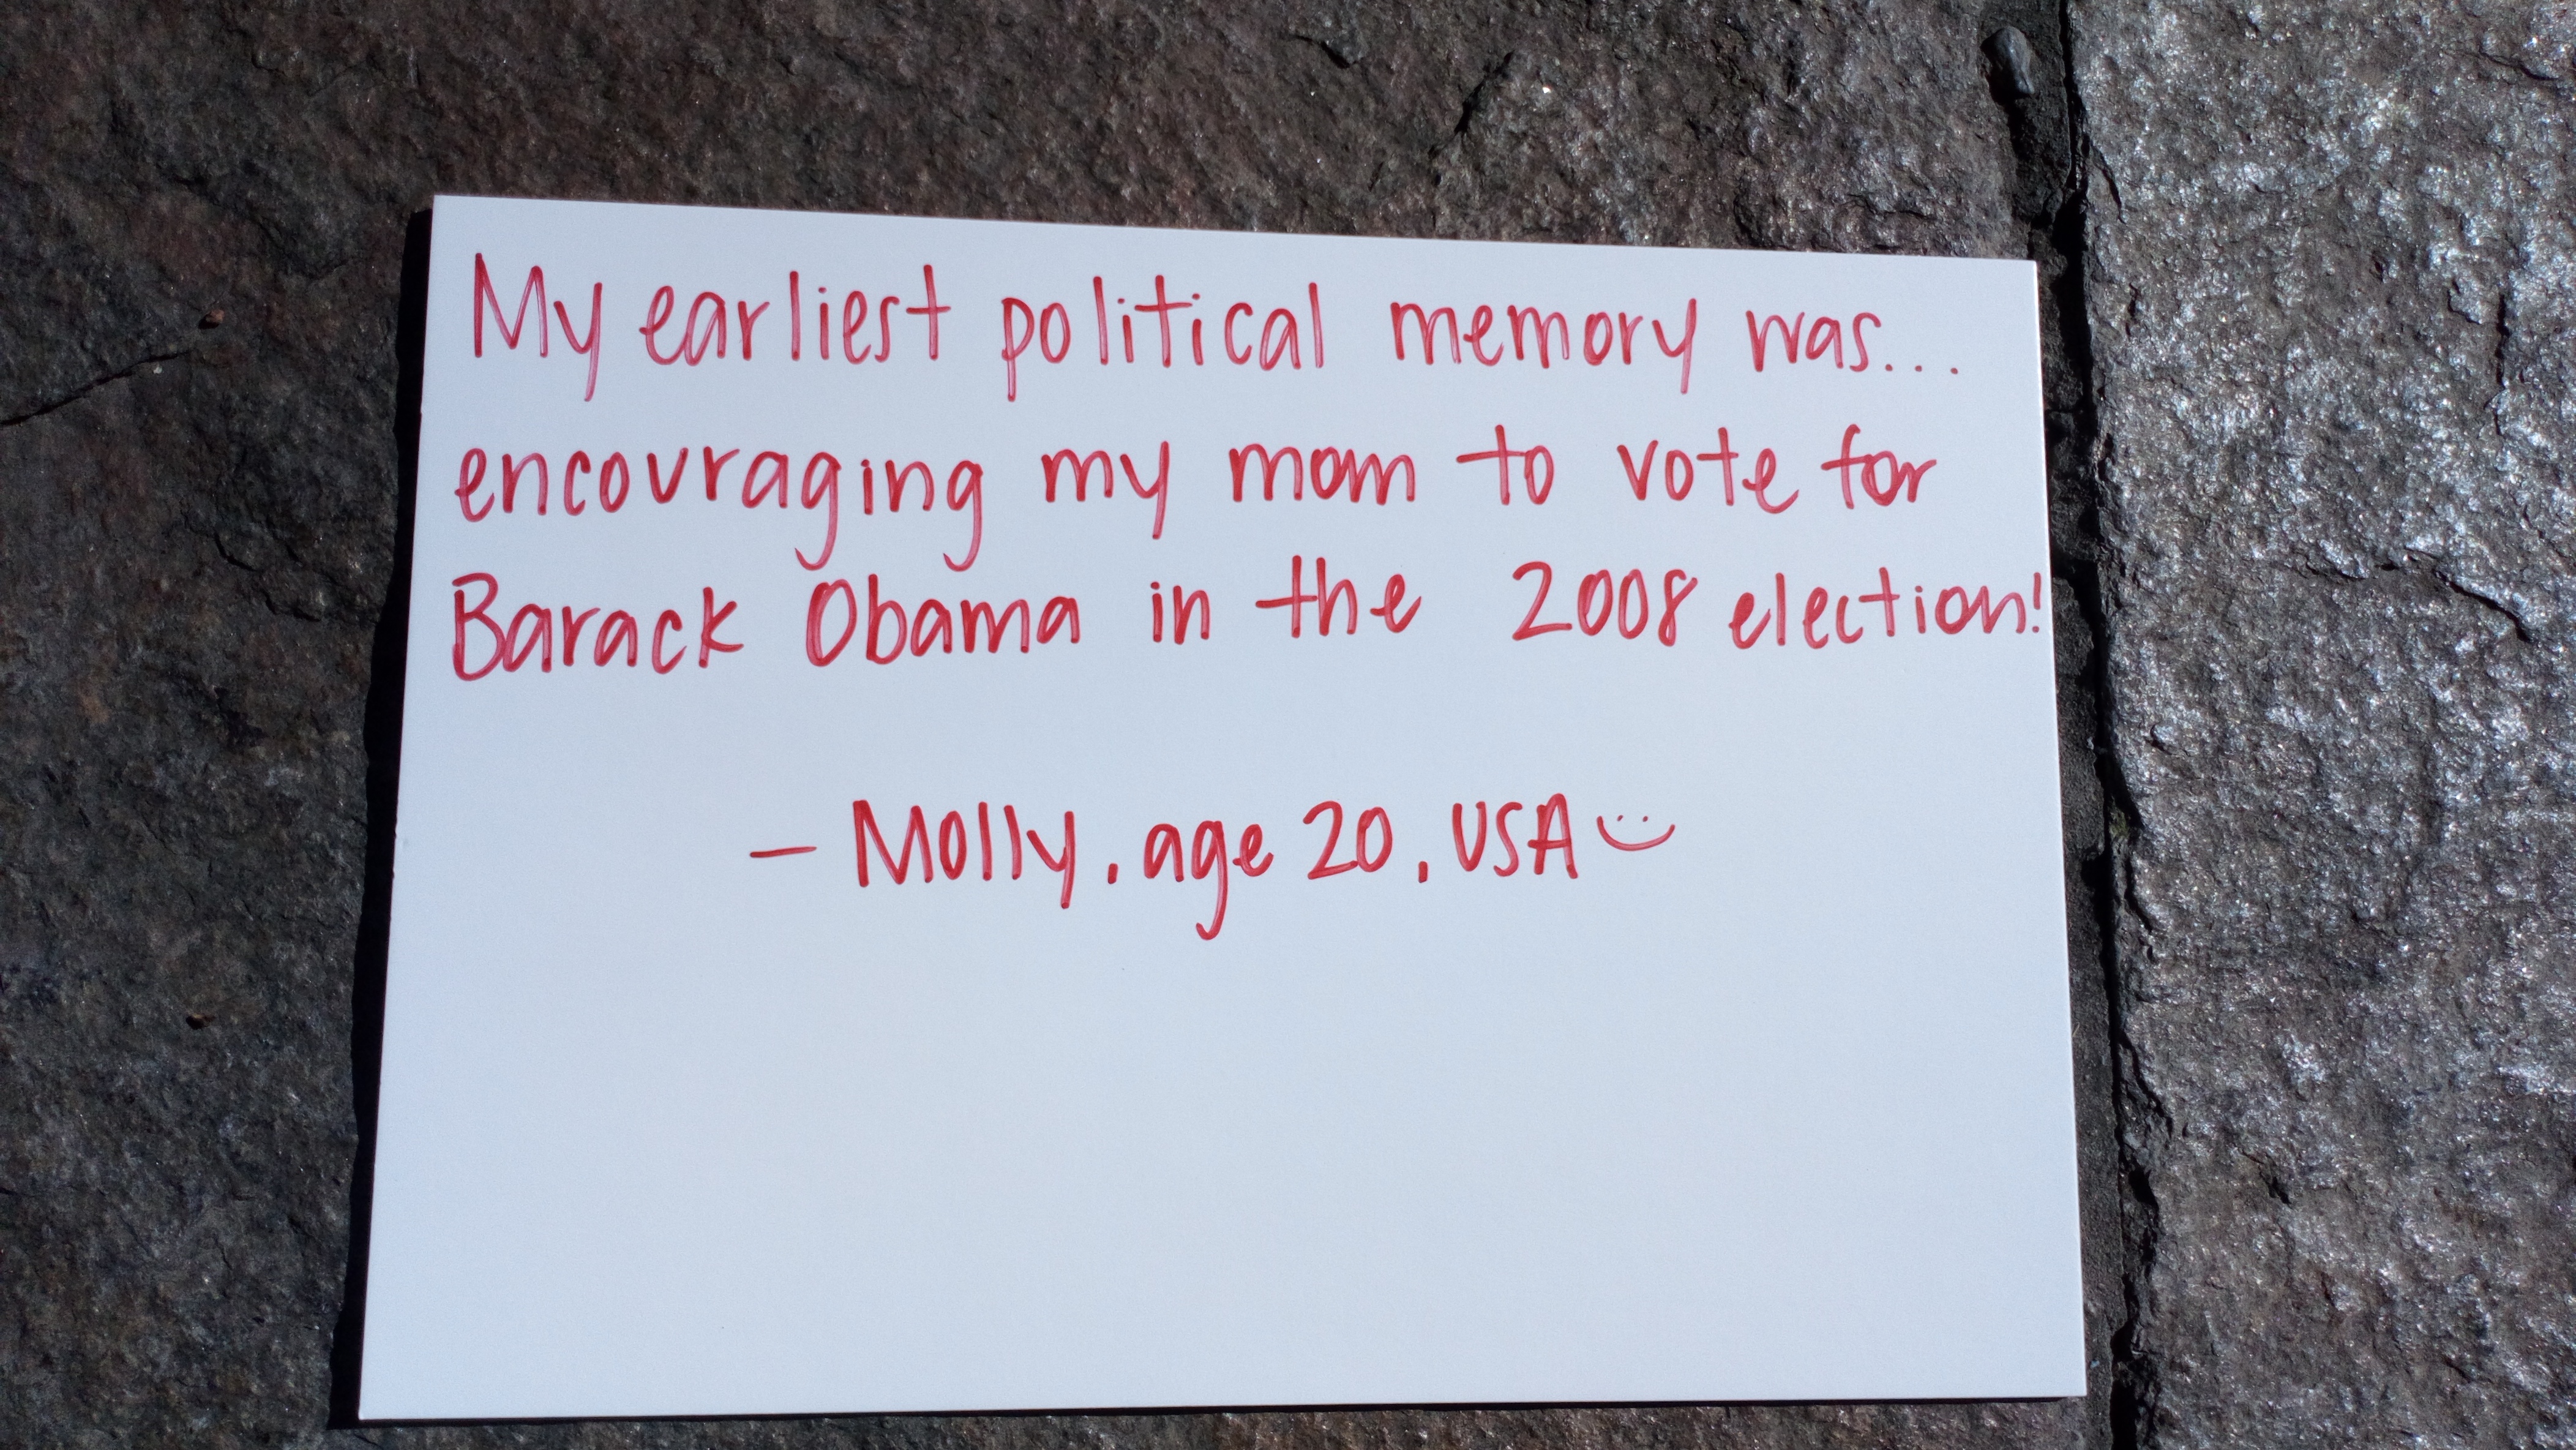 My earliest political memory was...
encouraging my mom to vote for
Barack Obama in the 2008 election!
- Molly, age 20, USA :)